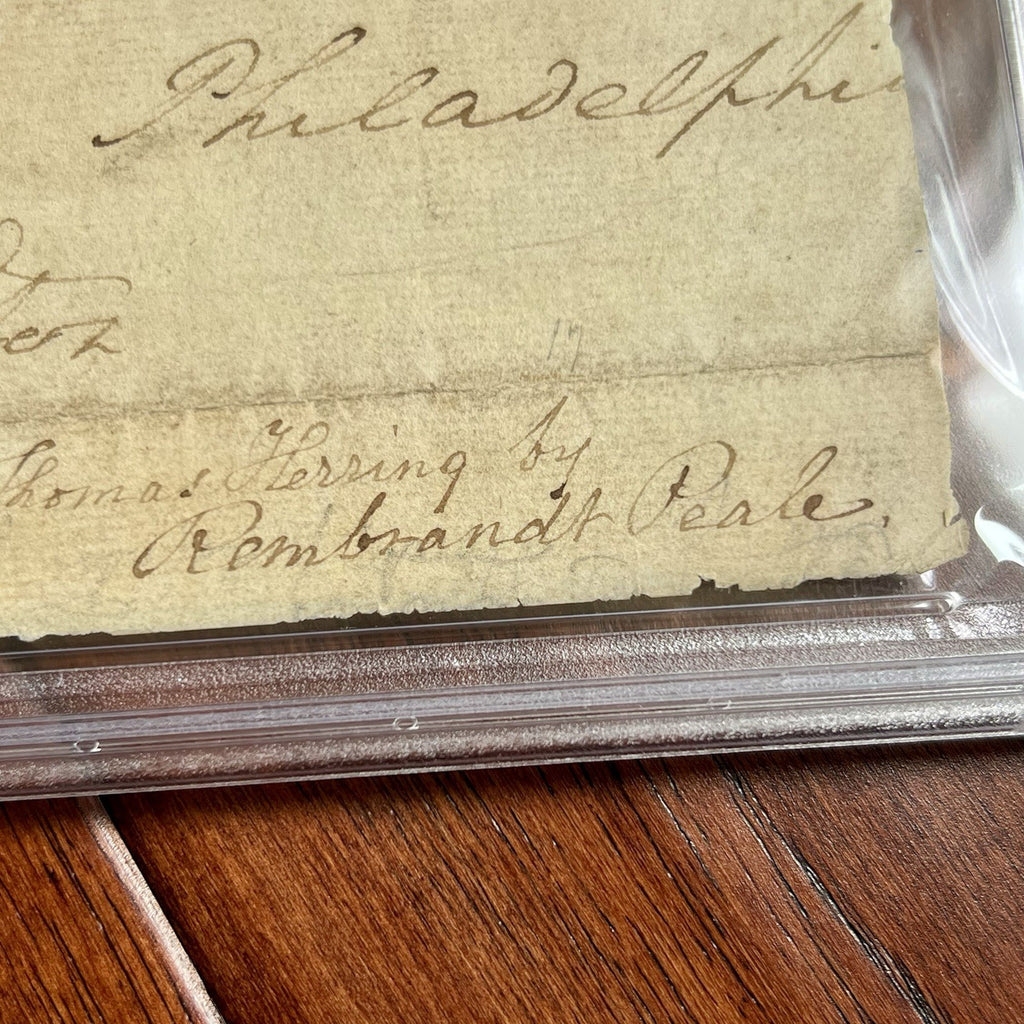 Philadelphia
17
Thomas Herring by
Rembrandt Peale.